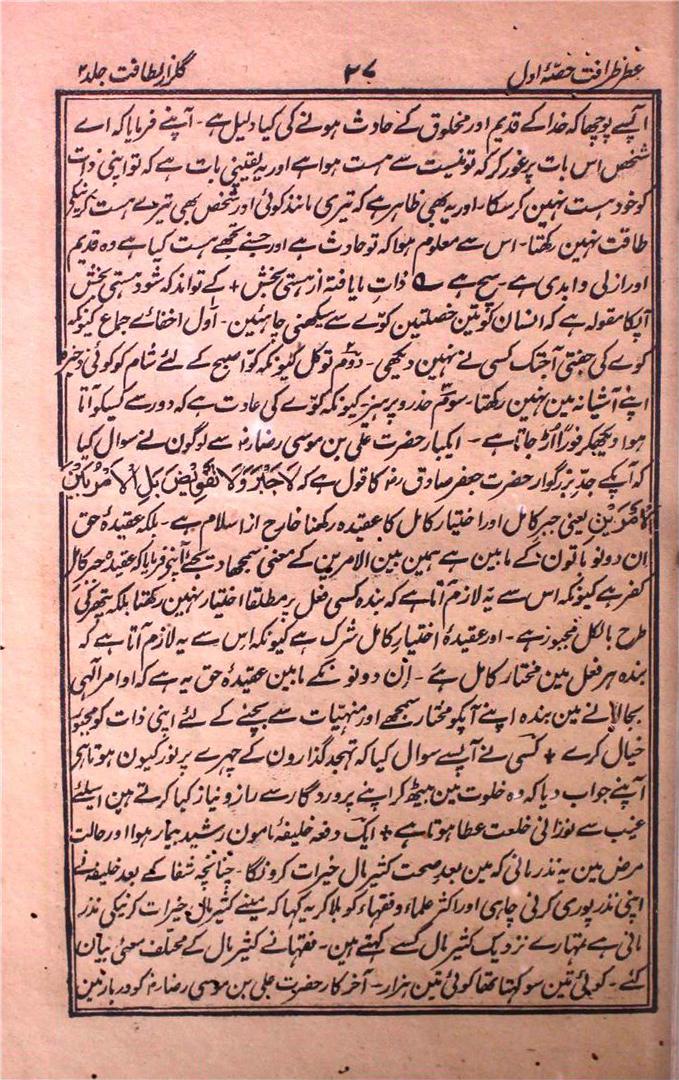 عطر ظرافت حصۂ اول ۲۷ گلزار لطافت جلد ۲
آپسے پوچھا کہ خدا کے قدیم اور مخلوق کے حادث ہونے کی کیا دلیل ہے ۔ آپنے فرمایا کہ اے
شخص اس بات پر غور کر کہ تو نیست سے ہست ہوا ہے اور یہ یقینی بات ہے کہ تو اپنی ذات
کو خود ہست نہین کر سکتا ۔ اور یہ بھی ظاہر ہے کہ تیری مانند کوئی اور شخص بھی تیرے ہست کرنیکی
طاقت نہین رکھتا ۔ اس سے معلوم ہوا کہ تو حادث ہے اور جسنے تجھے ہست کیا ہے وہ قدیم
اور ازلی و ابدی ہے ۔ سچ ہے ؎ ذات نایافتہ از ہستی بخش + کے تواند کہ شود ہستی بخش
آپکا مقولہ ہے کہ انسان کو تین خصلتین کوّے سے سیکھنی چاہئین ۔ اول اخفائے جماع کیونکہ
کوے کی جفتی آجتک کسی نے نہین دیکھی ۔ دوم توکل کیونکہ کوّا صبح کے لئے شام کو کوئی ذخیرہ
اپنے آشیانہ مین نہین رکھتا ۔ سوم حذر و پرہیز کیونکہ کوّے کی عادت ہے کہ دور سے کسیکو آتا
ہوا دیکھکر فوراً اُڑ جاتا ہے ۔ ایکبار حضرت علی بن موسی رضا رض سے لوگون نے سوال کیا
کہ آپکے جدِ بزرگوار حضرت جعفر صادق رض کا قول ہے کہ لَا جَبْرَ وَلَا تَفْوِیْضَ بَلِ الْاَمْرُ بَیْنَ
الْاَمْرَیْنِ یعنی جبرِ کامل اور اختیار کامل کا عقیدہ رکھنا خارج از اسلام ہے ۔ بلکہ عقیدۂ حق
ان دونو باتون کے مابین ہے ہمین بین الامرین کے معنی سمجھا دیجئے ۔ آپنے فرمایا کہ عقیدہ جبر کامل
کفر ہے کیونکہ اس سے یہ لازم آتا ہے کہ بندہ کسی فعل پر مطلقاً اختیار نہین رکھتا بلکہ پتھر کی
طرح بالکل مجبور ہے ۔ اور عقیدۂ اختیارِ کامل شرک ہے کیونکہ اِس سے یہ لازم آتا ہے کہ
بندہ ہر فعل مین مختار کامل ہے ۔ اِن دونو کے مابین عقیدۂ حق یہ ہے کہ اوامر الٰہی
بجا لانے مین بندہ اپنے آپکو مختار سمجھے اور منہیات سے بچنے کے لئے اپنی ذات کو مجبور
خیال کرے + کسی نے آپسے سوال کیا کہ تہجد گذارون کے چہرے پر نور کیون ہوتا ہی
آپنے جواب دیا کہ وہ خلوت مین بیٹھ کر اپنے پروردگار سے راز و نیاز کیا کرتے ہین اسلئے
غیب سے نورانی خلعت عطا ہوتا ہے + ایک دفعہ خلیفہ مامون رشید بیمار ہوا اور حالت
مرض مین یہ نذر مانی کہ مین بعدِ صحت کثیر مال خیرات کرونگا ۔ چنانچہ شفا کے بعد خلیفہ نے
اپنی نذر پوری کرنی چاہی اور اکثر علماء و فقہاء کو بلا کر یہ کہا کہ مینے کثیر مال خیرات کرنیکی نذر
مانی ہے تمہارے نزدیک کثیر مال کسے کہتے ہین ۔ فقہا نے کثیر مال کے مختلف معنی بیان
کئے ۔ کوئی تین سو کہتا تھا کوئی تین ہزار ۔ آخر کار حضرت علی بن موسی رضا رض کو دربار مین